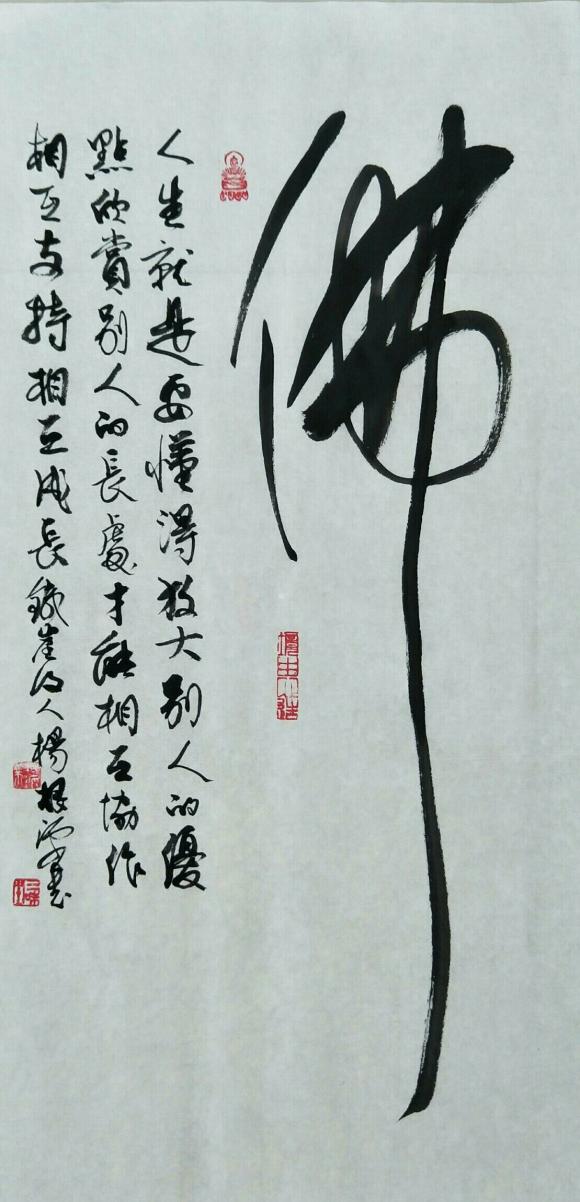 佛
人生就是要懂得放大别人的優
點欣賞别人的長處才能相互協作
相互支持相互成長鐵崖後人楊根源書